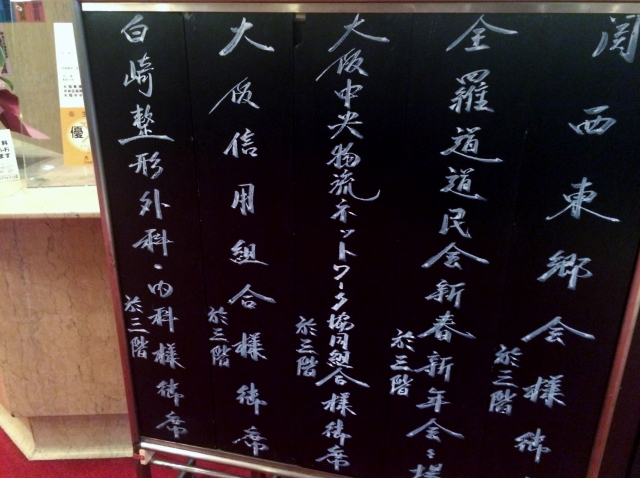 関西東郷会様御
於三階
全羅道道民会新春新年会ニ場
於三階
大阪中央物流ネットワーク協同組合様御席
於三階
大阪信用組合様御席
於三階
白崎整形外科・内科様御席
於三階
優